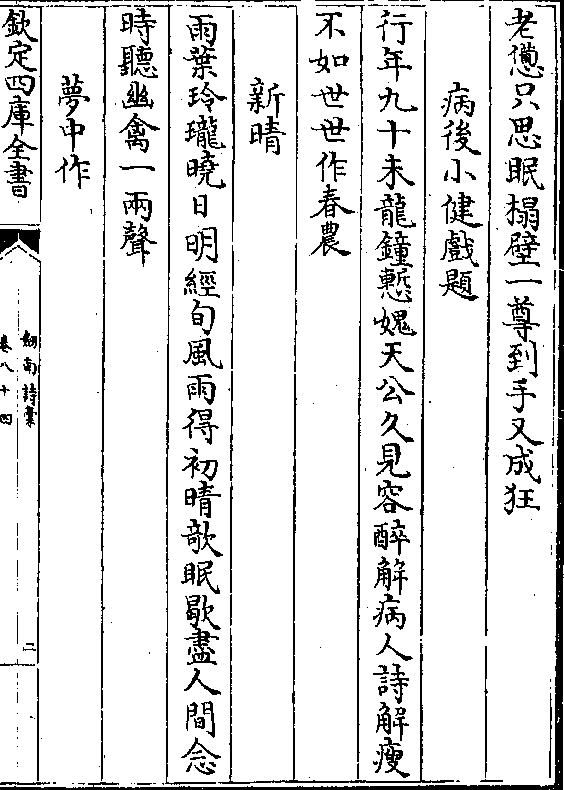 老憊只思眠榻壁一尊到手又成狂
病後小健戲題
行年九十未龍鐘慙媿天公久見容醉解病人詩解瘦
不如世世作春農
新晴
雨葉玲瓏曉日明經旬風雨得初晴欹眠歇盡人間念
時聽幽禽一兩聲
夢中作
欽定四庫全書
劍南詩稾
卷八十四
二